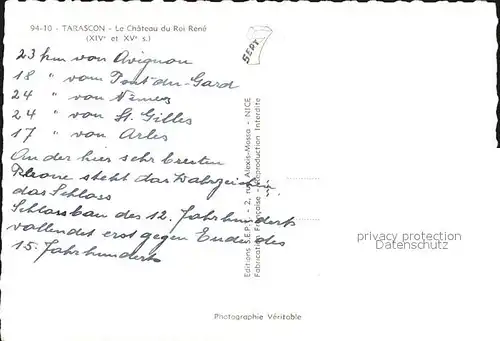 94-10 - TARASCON - Le Château du Roi René
(XIVe et XVe s.)
SEPT
23 km von Avignon
18 " vom Pont-du-Gard
24 " von Nîmes
24 " von St. Gilles
17 " von Arles
An der hier sehr breiten
Rhone steht das Wahrzeichen,
das Schloss
Schlossbau des 12. Jahrhunderts
vollendet erst gegen Ende des
15. Jahrhunderts
Editions S.E.P.T. - 2, rue Alexis-Mossa - NICE
Fabrication Française - Reproduction Interdite
privacy protection
Datenschutz
Photographie Véritable